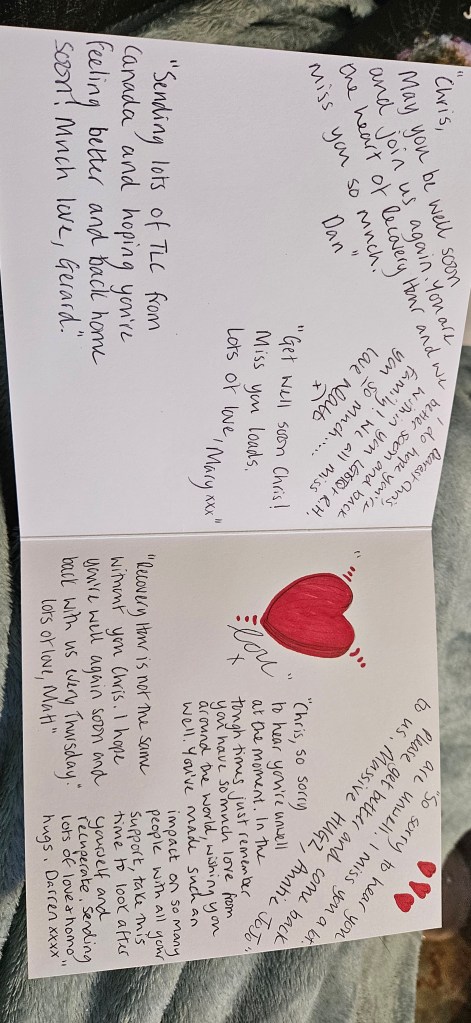 "Chris,
May you be well soon
and join us again. You are
the heart of Recovery Hour and we
miss you so much.
Dan"
Dearest Chris
I do hope you're
better soon and back
within your LGBTQ+ R.H.
family! We all miss
you so much.....
Love
"Sending lots of TLC from
Canada and hoping you're
feeling better and back home
soon! Much love, Gerard."
"Get well soon Chris!
Miss you loads.
Lots of love, Mary xxx"
"So sorry to hear you
are unwell. I miss you a lot.
Please get better and come back
to us. Massive HUGZ - Auntie JoJo"
"
love"
x
"Chris, so sorry
to hear you're unwell
at the moment. In the
tough times just remember
you have so much love from
around the world, wishing you
well. You've made such an
impact on so many
people with all your
support, take this
time to look after
yourself and
recuperate. Sending
lots of love & homo
hugs. Darren xxxx"
"Recovery Hour is not the same
without you Chris. I hope
you're well again soon and
back with us every Thursday.
Lots of love, Matt"